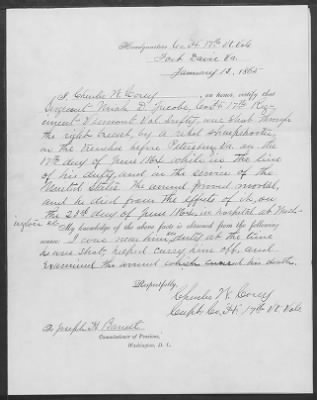 Headquarters Co. H. 17th Vt. Vols
Fort Davis Va.
January 13, 1865
I, Charles W. Corey, on honor, certify that
Sergeant D. Jacobs, Co. H. 17th Reg-
iment Vermont Vol. Inft'y was shot through
the right breast, by a rebel sharpshooter,
in the trenches before Petersburg, Va. on the
17th day of June 1864 while in the line
of his duty, and in the service of the
United States. The wound proved mortal,
and he died from the effects of it, on
the 23d day of June 1864, in hospital at Wash-
ington D.C. My knowledge of the above facts is obtained from the following
source: I was near him, on duty at the time
he was shot, helped carry him off, and
examined the wound which caused his death.
Respectfully,
Charles W. Corey
Capt. Co. H. 17th Vt. Vols
To Joseph H. Barrett
Commissioner of Pensions,
Washington, D. C.